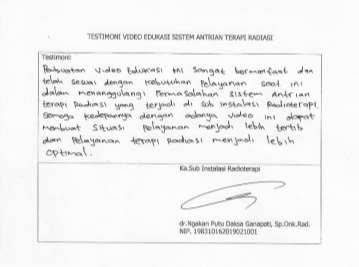 TESTIMONI VIDEO EDUKASI SISTEM ANTRIAN TERAPI RADIASI
Testimoni:
Pembuatan Video Edukasi ini sangat bermanfaat dan
telah sesuai dengan kebutuhan Pelayanan saat ini
dalam menanggulangi Permasalahan Sistem Antrian
terapi Radiasi yang terjadi di sub Instalasi Radioterapi.
Semoga kedepannya dengan adanya video ini dapat
membuat Situasi Pelayanan menjadi lebih tertib
dan Pelayanan terapi Radiasi menjadi lebih
optimal.
Ka.Sub Instalasi Radioterapi
dr.Ngakan Putu Daksa Ganapati, Sp.Onk.Rad.
NIP. 198310162019021001